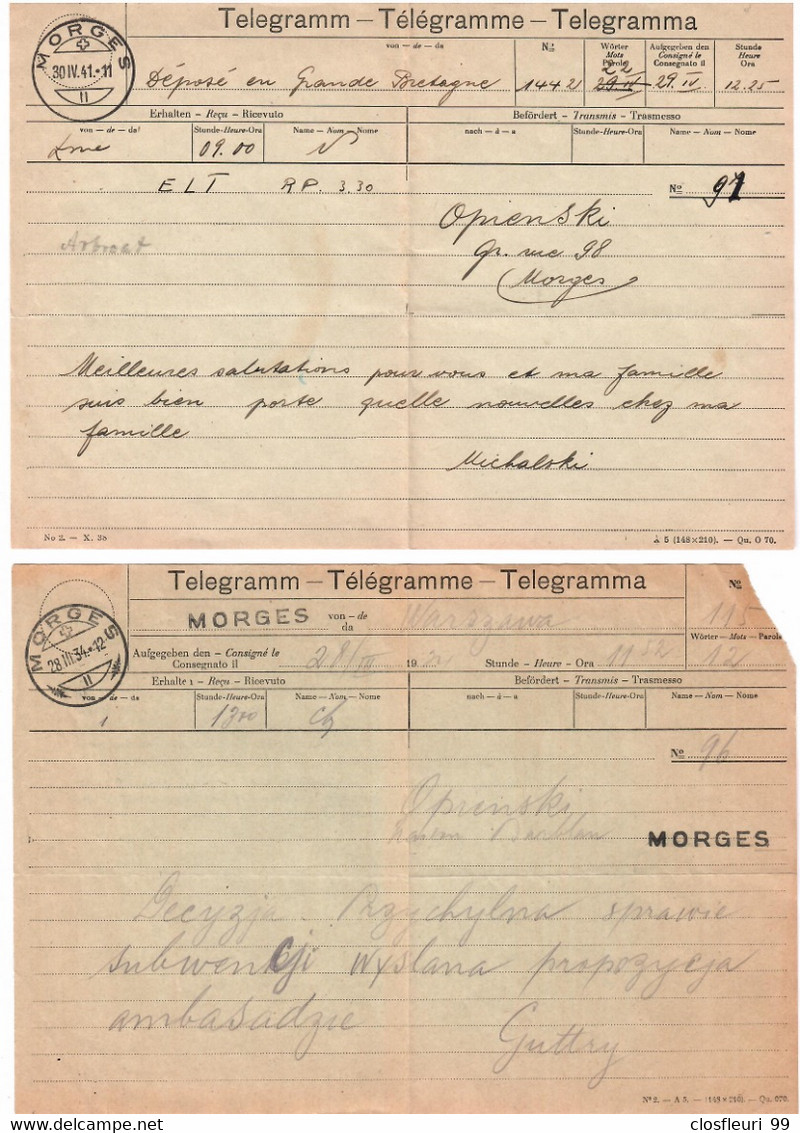 Telegramm — Télégramme — Telegramma
MORGES
30 IV. 41.-11
II
von — de — da
Déposé en Grande Bretagne
No
1442
Wörter
Mots
Parole
22
29. IV
Aufgegeben den
Consigné le
Consegnato il
29. IV.
Stunde
Heure
Ora
12.25
Erhalten — Reçu — Ricevuto
Befördert — Transmis — Trasmesso
von — de — da
Stunde-Heure-Ora
Name — Nom — Nome
nach — à — a
Stunde-Heure-Ora
Name — Nom — Nome
09.00
ELT RP. 3.30
No 97
Opienski
Gr. rue 98
Morges
Meilleures salutations pour vous et ma famille
suis bien porte quelle nouvelles chez ma
famille
Michalski
No 2. — X. 38
A 5 (148×210). — Qu. O 70.
Telegramm — Télégramme — Telegramma
MORGES
28.III.34.-12
II
MORGES
von — de
da
Warszawa
No
115
Wörter — Mots — Parole
12
Aufgegeben den — Consigné le
Consegnato il
28/III
19
Stunde — Heure — Ora
11 52
Erhalte 1 — Reçu — Ricevuto
Befördert — Transmis — Trasmesso
von — de — da
Stunde-Heure-Ora
Name — Nom — Nome
nach — à — a
Stunde-Heure-Ora
Name — Nom — Nome
1300
No 96
Opienski
MORGES
Decyzja Przychylna sprawie
subwencji wyslana propozycja
ambasadzie
Guttry
No 2. — A 5. — (148×210). — Qu. 070.
closfleuri 99